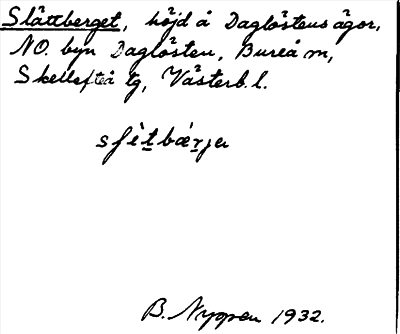 Slättberget, höjd å Daglöstens ägor,
NO. byn Daglösten, Bureå m,
Skellefteå tg, Västerb. l.
B. Nygren 1932.